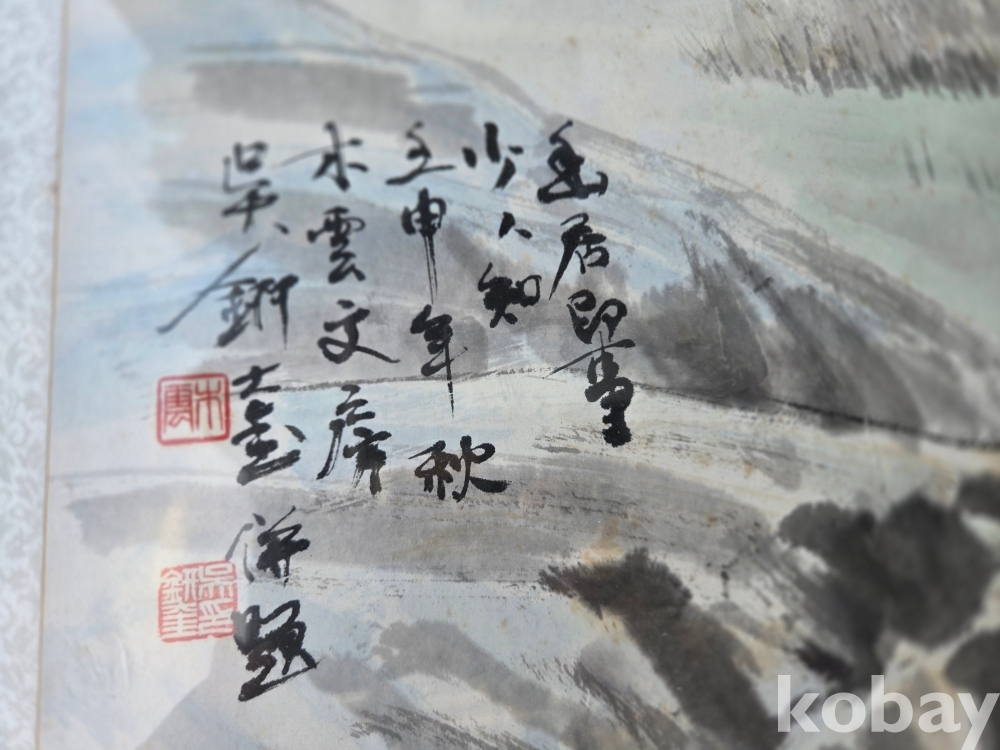 幽居即
少人知
壬申年秋
水雲文房
吳
併題
水雲
吳
kobay